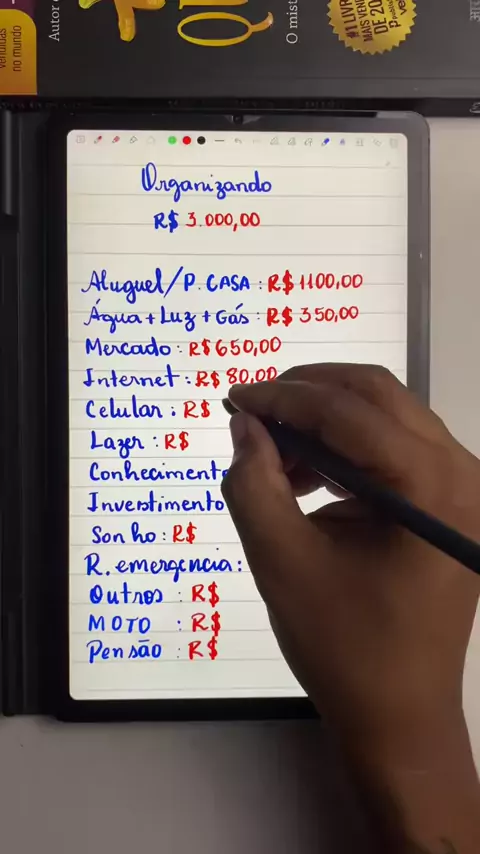 vendidas
no mundo
Autor
O mist
#1 LIVR
MAIS VEN
DE 20
Organizando
R$ 3.000,00
Aluguel/P. CASA : R$ 1100,00
Água + Luz + Gás : R$ 350,00
Mercado : R$ 650,00
Internet : R$ 80,00
Celular : R$
Lazer : R$
Conhecimento
Investimento
Sonho : R$
R. emergencia :
Outros : R$
MOTO : R$
Pensão : R$